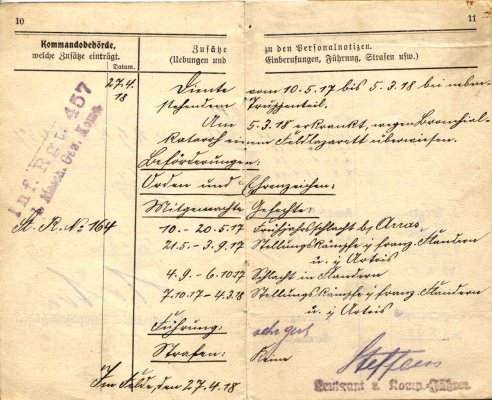 10
11
Kommandobehörde,
welche Zusätze einträgt.
Datum.
Zusätze zu den Personalnotizen.
(Uebungen und Einberufungen, Führung, Strafen usw.)
Inf. Rgt. 457
Masch. Gew. Komp.
27.4.
18
Diente vom 10.5.17 bis 5.3.18 bei neben-
stehendem Truppenteil.
Am 5.3.18 erkrankt, wegen Bronchial-
katarrh einem Feldlazarett überwiesen.
Beförderungen:
Orden und Ehrenzeichen:
Mitgemachte Gefechte:
J. R. No 164
10. - 20.5.17 Frühjahrsschlacht b/ Arras
21.5. - 3.9.17 Stellungskämpfe i/ franz. Flandern
u. i/ Artois
4.9. - 6.10.17 Schlacht in Flandern
7.10.17 - 4.3.18 Stellungskämpfe i/ franz. Flandern
u. i/ Artois
Führung: sehr gut
Strafen: Keine
Im Felde, den 27.4.18
Steffens
Leutnant u. Komp.-Führer